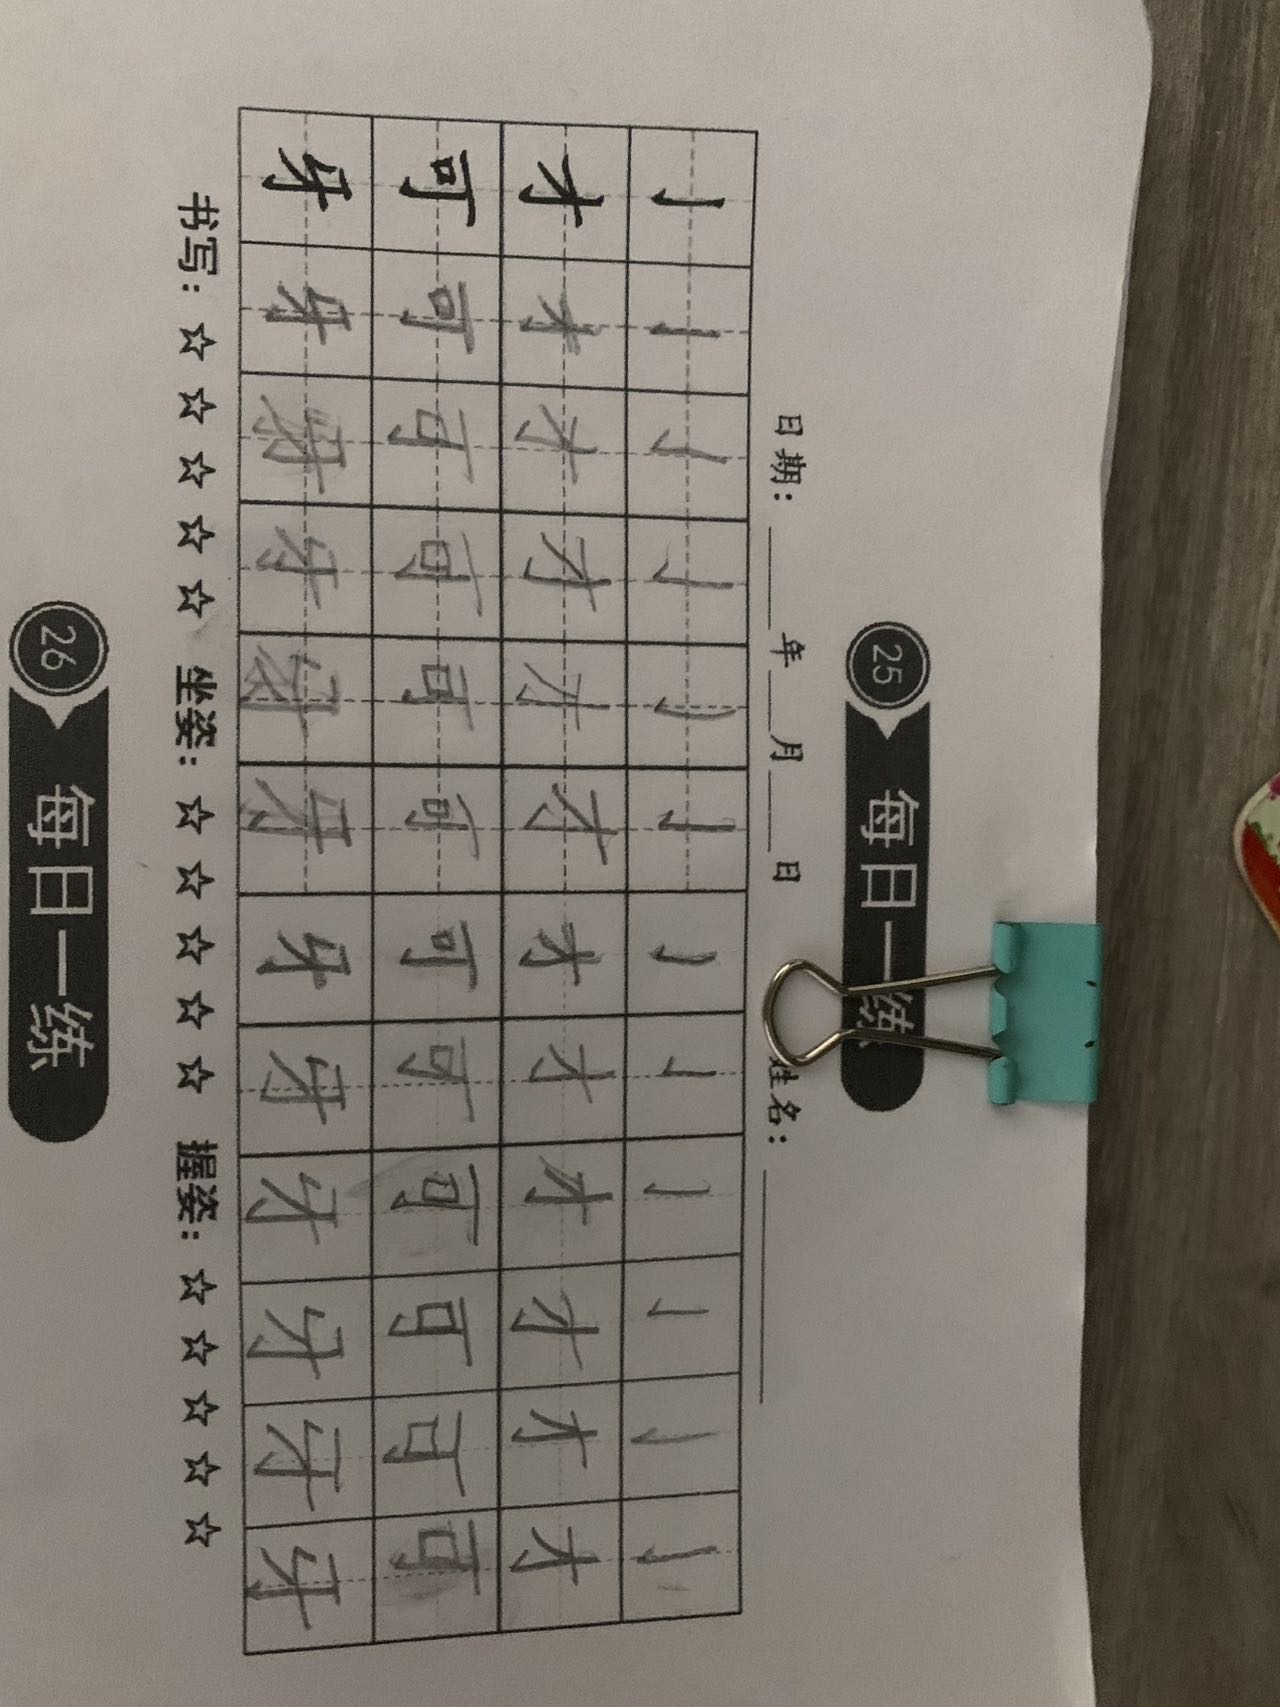 25 每日一练
日期:____年__月__日 姓名:________
亅 亅 亅 亅 亅 亅 亅 亅 亅 亅 亅 亅
才 才 才 才 才 才 才 才 才 才 才 才
可 可 可 可 可 可 可 可 可 可 可 可
牙 牙 牙 牙 牙 牙 牙 牙 牙 牙 牙 牙
书写:☆☆☆☆☆ 坐姿:☆☆☆☆☆ 握姿:☆☆☆☆☆
26 每日一练